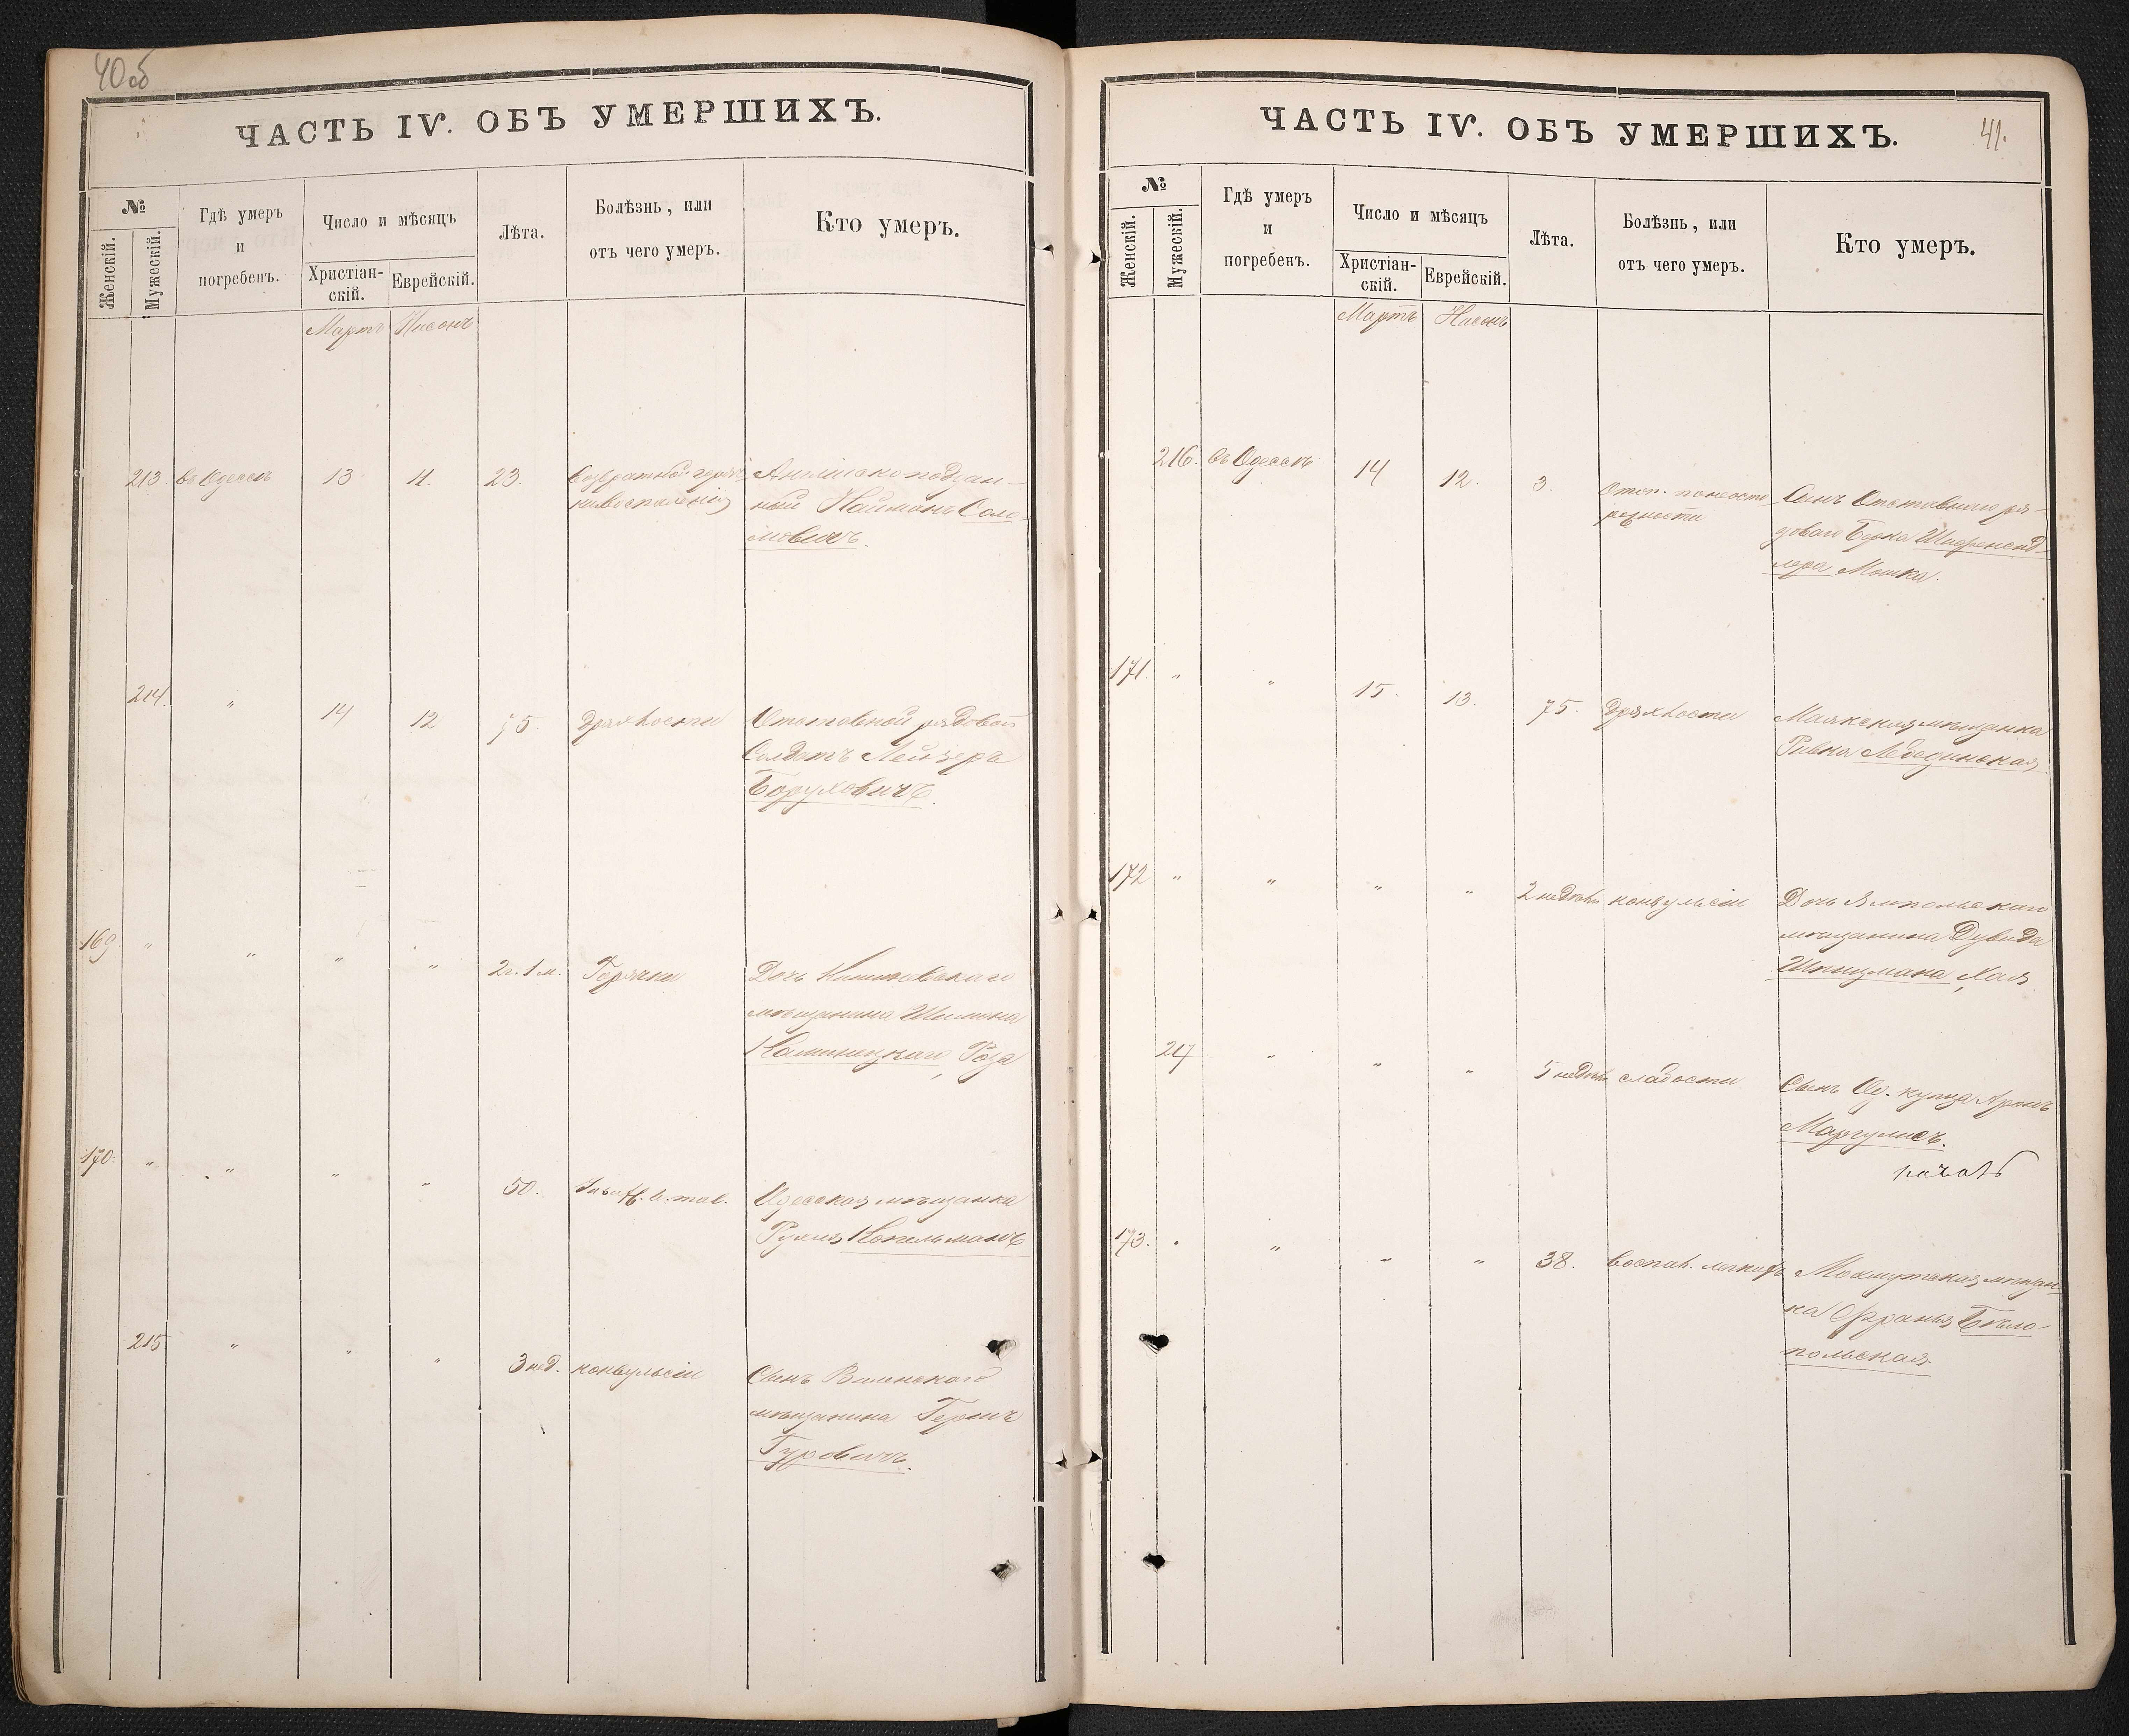 40об
ЧАСТЬ IV. ОБЪ УМЕРШИХЪ.
№
Женскій.
Мужескій.
Гдѣ умеръ
и
погребенъ.
Число и мѣсяцъ
Христіан-
скій.
Еврейскій.
Лѣта.
Болѣзнь, или
отъ чего умеръ.
Кто умеръ.
Мартъ Нисонъ
213 въ Одессѣ 13 11. 23.
ный Нойманъ Соло-
мовичъ.
214. " 14 12 75. Дряхлости Отставной рядовой
Солдатъ Лейзеръ
Боруховичъ.
169. " " " " 2г. 1м. Горячки Дочь
мѣщанина
Каминецкаго, Роза
170. " " " " 50. Одесская мѣщанка
Рухля Копельманъ
215 " " " 3 нед. конвульсіи Сынъ Виленскаго
мѣщанина Гершъ
Гуровичъ.
41.
ЧАСТЬ IV. ОБЪ УМЕРШИХЪ.
№
Женскій.
Мужескій.
Гдѣ умеръ
и
погребенъ.
Число и мѣсяцъ
Христіан-
скій.
Еврейскій.
Лѣта.
Болѣзнь, или
отъ чего умеръ.
Кто умеръ.
Мартъ Нисонъ
216. въ Одессѣ 14 12. 3. Сынъ Отставного ря-
дового Берка
Мошка.
171. " " 15. 13. 75. Дряхлости Маякская мѣщанка
Ривка Лебединская
172 " " " " 2 недѣли конвульсіи Дочь Ямпольскаго
мѣщанина Дувида
Шпицмана, Хая
217 " " " 5 недѣль слабости Сынъ Од. купца Аронъ
Маргулисъ.
173. " " " " 38. воспал. легкихъ мѣщан-
ка Франя Бѣло-
польская.